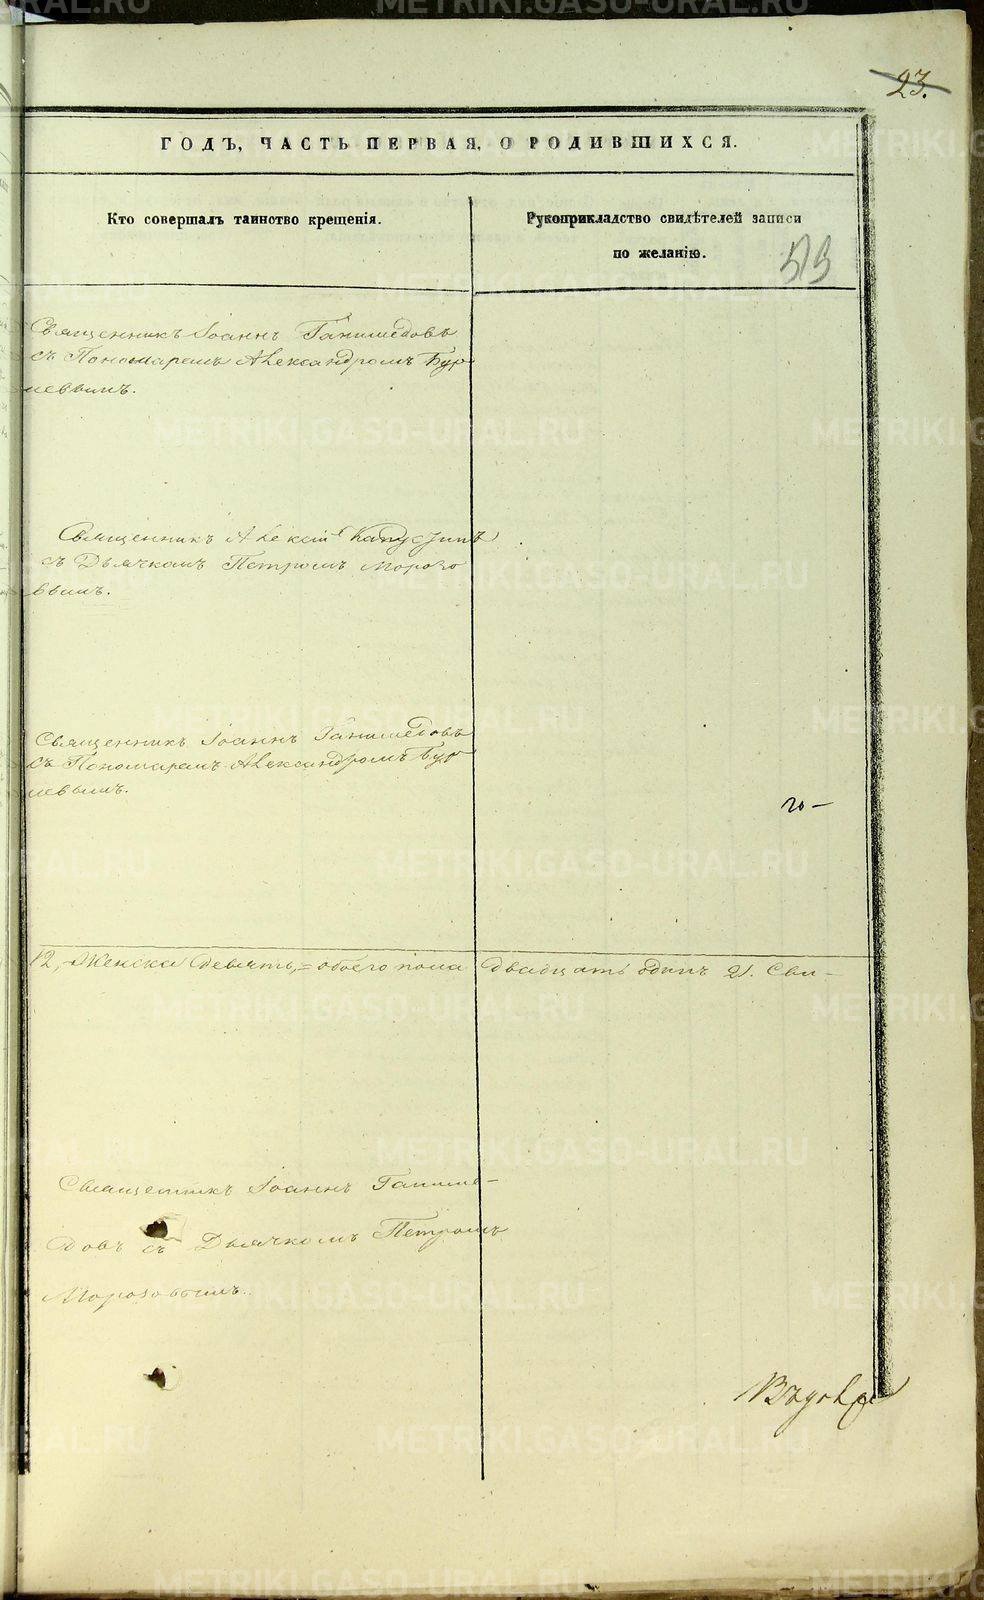 23.
ГОДЪ, ЧАСТЬ ПЕРВАЯ, О РОДИВШИХСЯ.
Кто совершалъ таинство крещенія.
Рукоприкладство свидѣтелей записи
по желанію.
Священникъ Іоаннъ Ганимедовъ
съ Пономаремъ Александромъ Бур
Священникъ Алексій Капустинъ
съ Дьячкомъ Петромъ Морозо
вымъ.
Священникъ Іоаннъ Ганимедовъ
съ Пономаремъ Александромъ Бур
12, Женска девять, = обоего пола двадцать одинъ 21. Сви-
Священникъ Іоаннъ Ганиме-
довъ съ Дьячкомъ Петромъ
Морозовымъ.
METRIKI.GASO-URAL.RU